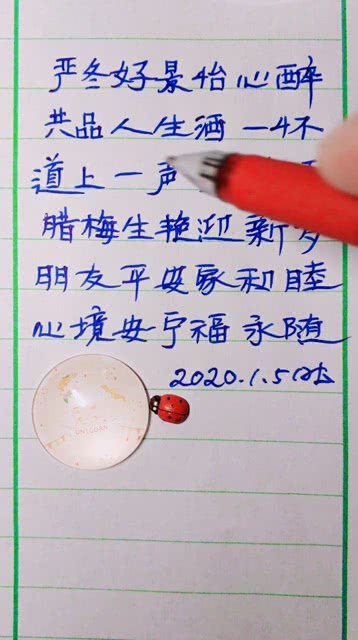 严冬好景怡心醉
共品人生酒一杯
道上一声
腊梅生艳迎新岁
朋友平安家和睦
心境安宁福永随
2020.1.5
UNICORN